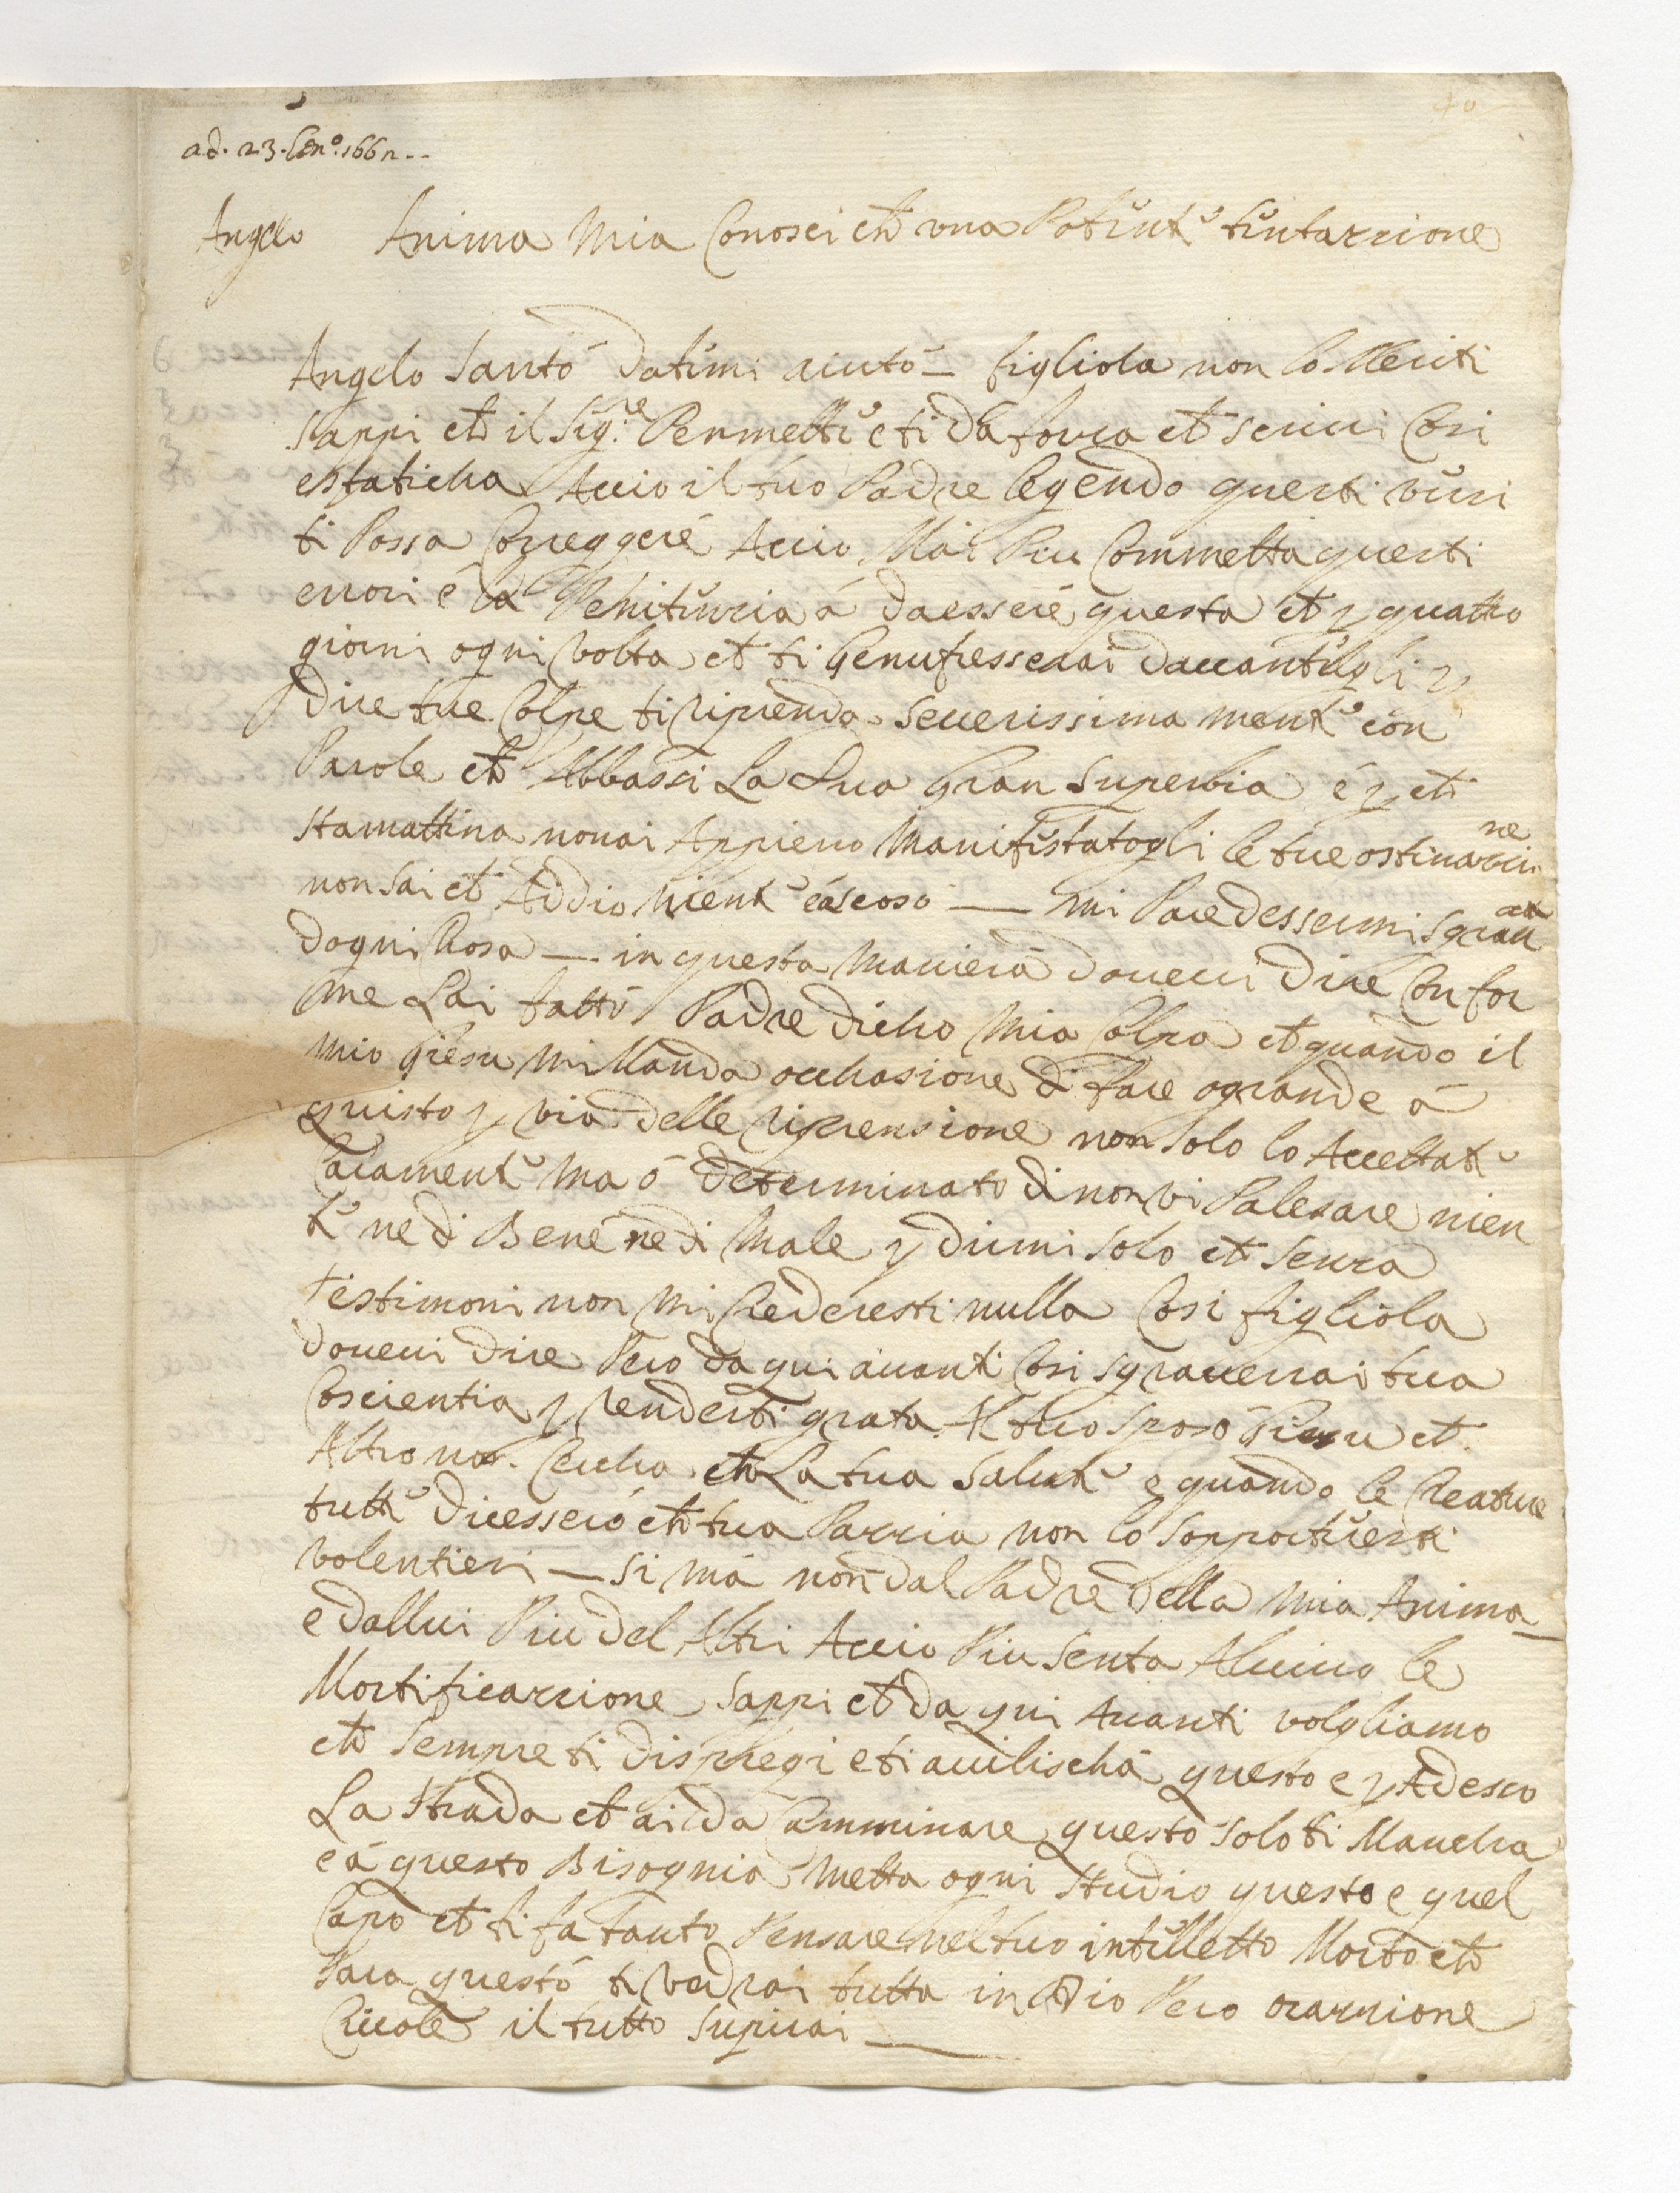 40
ad. 23. Gen.o 1662..
Angelo Anima Mia Conosci che una Potente tentazzione
Angelo Santo datemi aiuto _ figliola non lo Meriti
sappi che il Sig.re Permette e ti da forza che scrivi Cosi
estaticha Accio il tuo Padre legendo questi versi
ti Possa Correggere Accio Mai Piu Commetta questi
errori e la Penitenzia á da essere questa che p quattro
giorni ogni volta che ti Genufresserai davantegli p
dire tue Colpe ti riprenda severissima mente con
Parole che Abbassi La Sua Gran Superbia e p che
stamattina non ai Appieno Manifestatogli le tue ostinazio ne
non sai che Addio niente é ascoso __ Mi Pare dessermi sgrau ata
dogni Chosa __ in questa Maniera dovevi dire Con for
me Lai fatto Padre dicho Mia Colpa che quando il
mio Giesu mi Manda occhasione di fare o grande á
quisto p via delle riprensione non solo lo Accettate
Caramente Ma ó determinato di non vi Palesare nien
te ne di Bene ne di Male p dirmi solo che senza
testimoni non Mi Crederesti nulla Cosi figliola
dovevi dire Pero da qui avanti Cosi sgraverrai tua
Coscientia p renderti grata Al tuo sposo Giesu che
Altro non Cercha che La tua salute e quando le Creature
tutte dicessero che tua Pazzia non lo sopporteresti
volentieri __ si ma non dal Padre della Mia Anima _
e dallui Piu del Altri Accio Piu senta Alvivo le
Mortificazzione sappi che da qui Avanti volgliamo
che sempre ti dispregi e ti avilischa questo e p Adesso
La strada che ai da Camminare questo solo ti Mancha
e á questo Bisognia Metta ogni studio questo e quel
Capo che ti fa tanto Pensare nel tuo intelletto Morto che
sara questo ti vedrai tutta in Dio Pero orazzione
il tutto